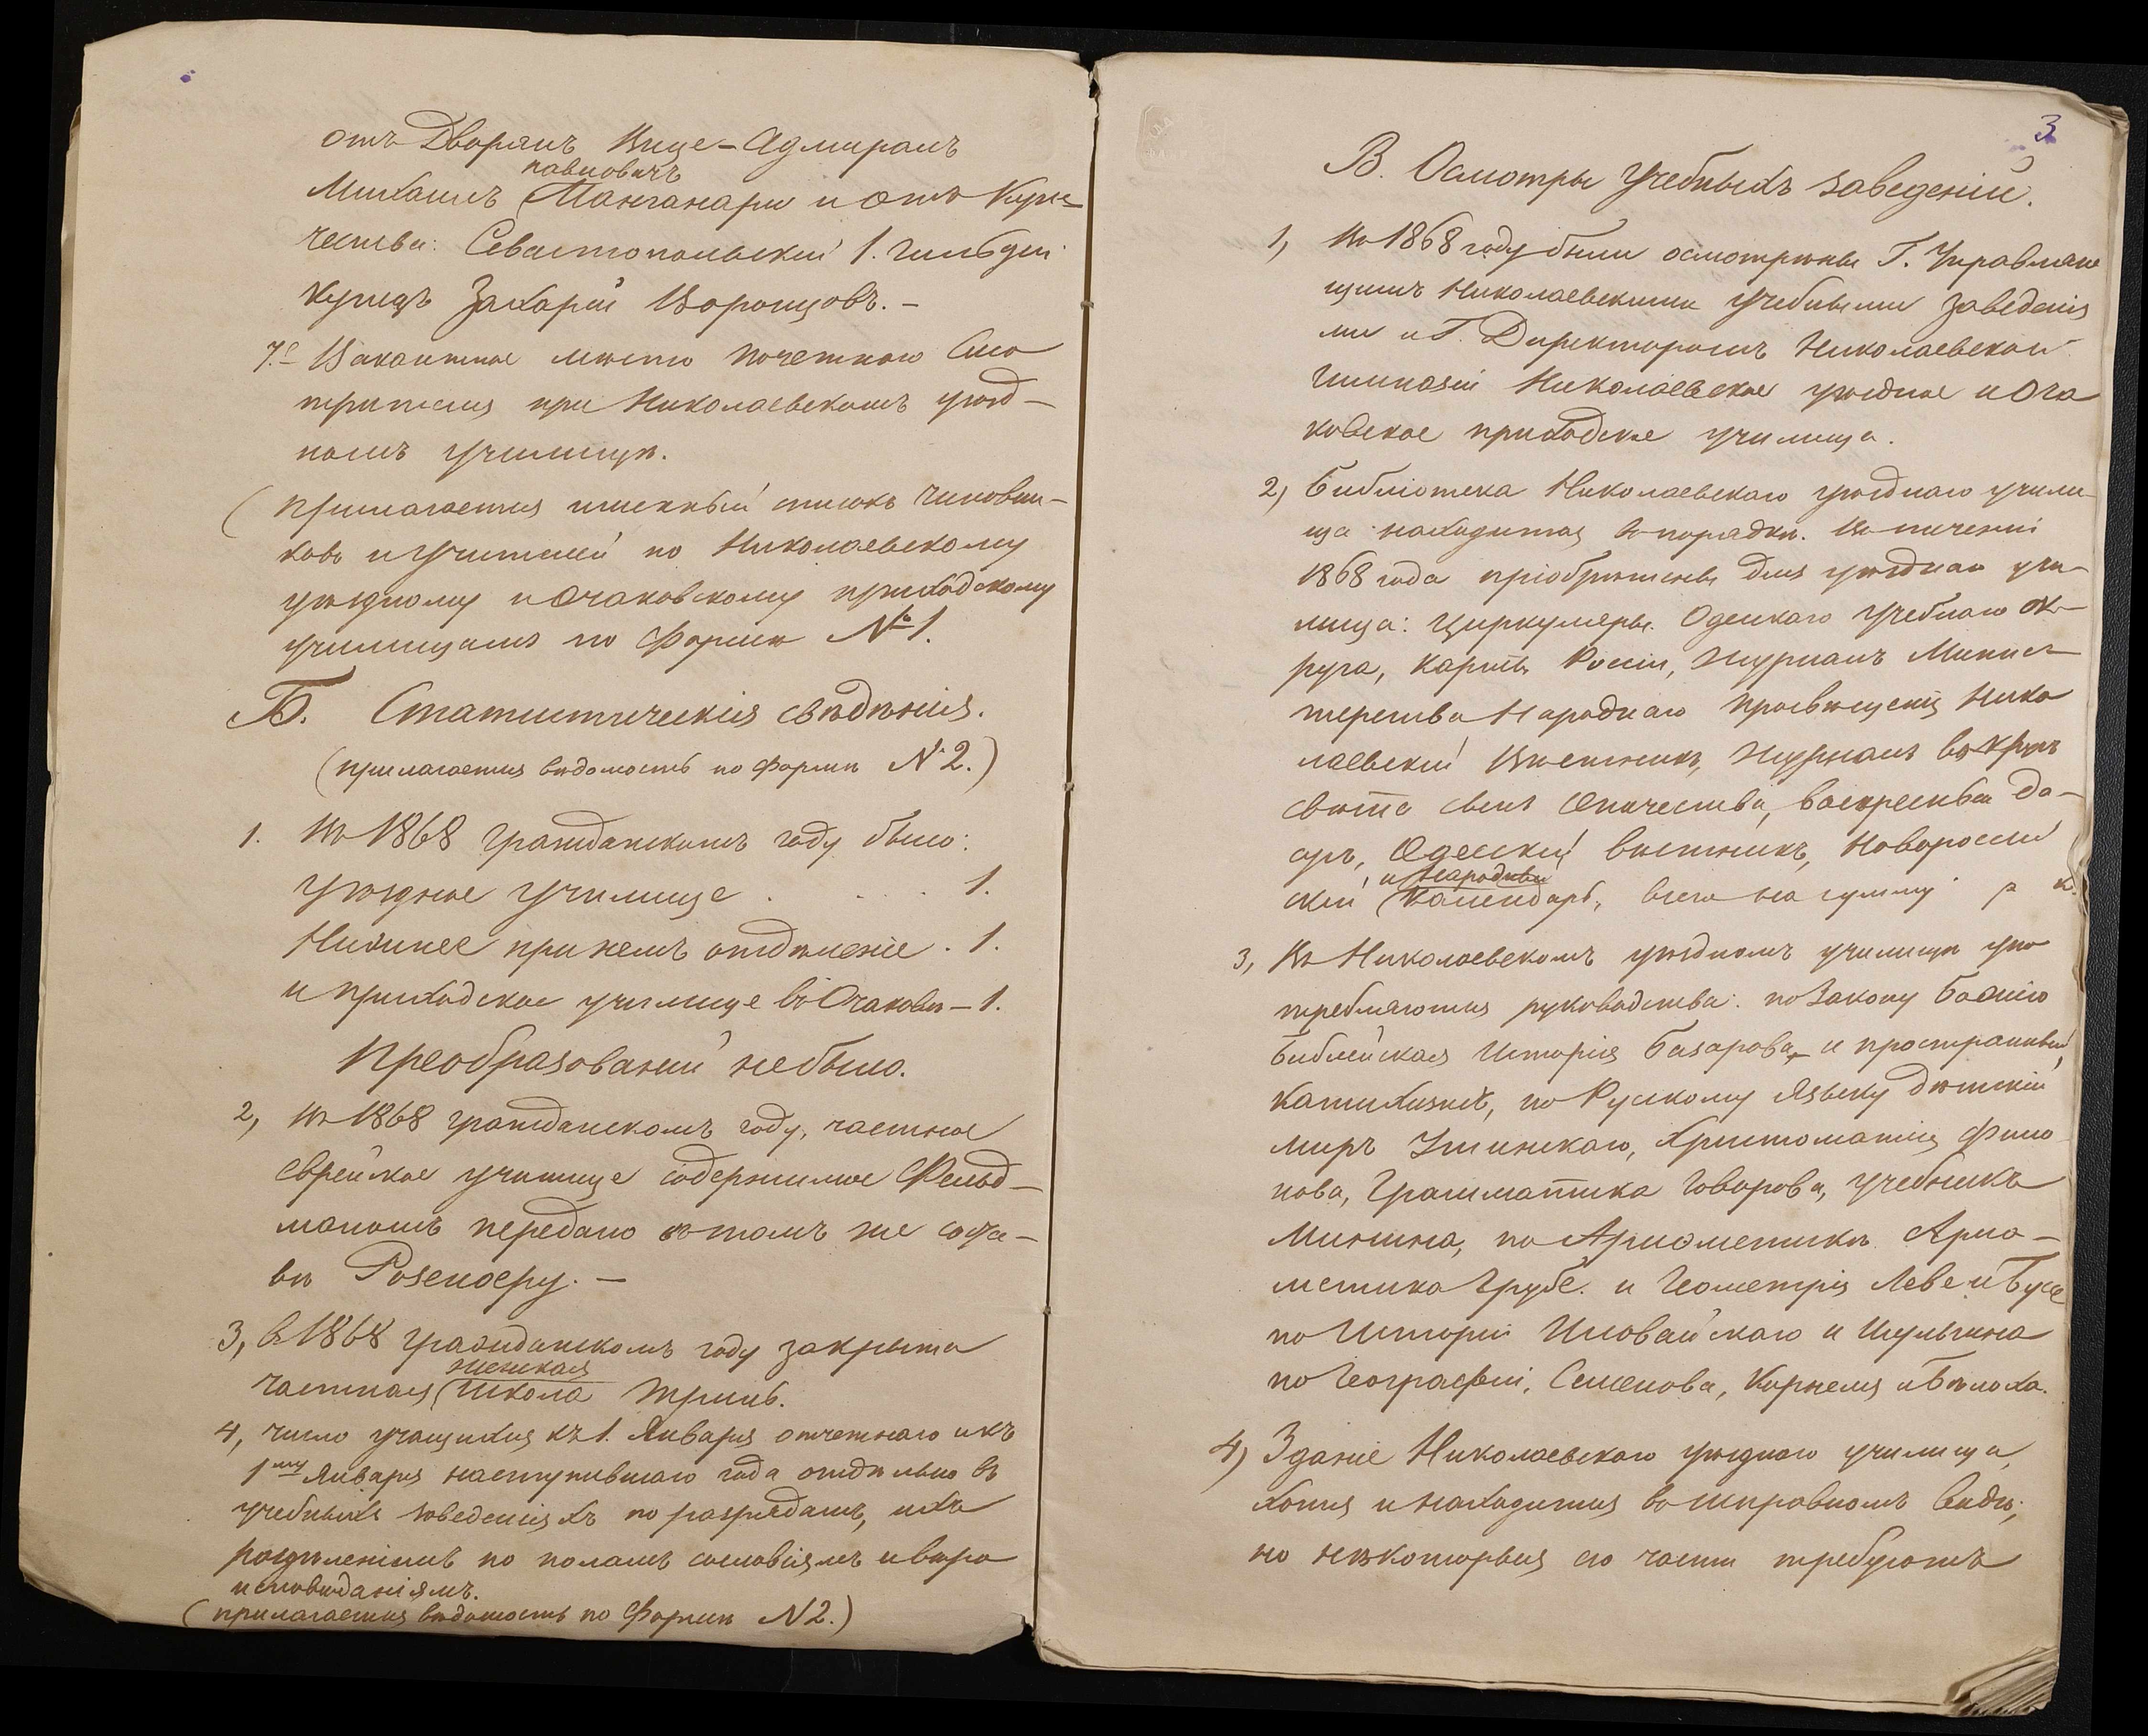 отъ Дворянъ Вице-Адмиралъ
павловичъ
Михаилъ Манганари и отъ Купе-
чества: Севастопольскій 1. гильдіи
купецъ Захарій Воронцовъ. –
7. Вакантное мѣсто почетнаго Смо
трителя при Николаевскомъ уѣзд-
номъ училищѣ.
(прилагается имянный списокъ чиновни-
ковъ и учителей по Николаевскому
уѣздному и Очаковскому приходскому
училищамъ по формѣ № 1.
Б. Статистическія свѣдѣнія.
(прилагается вѣдомость по формѣ № 2.)
1. Въ 1868 гражданскомъ году было:
уѣздное училище . . . . 1.
Низшее при немъ отдѣленіе . 1.
и приходское училище въ Очаковѣ – 1.
Преобразованій не было.
2, Въ 1868 гражданскомъ году, частное
еврейское училище содержимое Фельд-
маномъ передано въ томъ же соста-
вѣ Розеноеру. –
3, въ 1868 гражданскомъ году закрыта
женская
частная (школа Тринь.
4, число учащихся къ 1. Января отчетнаго и къ
1му Января наступившаго года отдѣльно въ
учебныхъ заведеніяхъ по разрядамъ, ихъ
раздѣленіямъ по поламъ сословіямъ и вѣро
исповѣданіямъ.
(прилагается вѣдомость по формѣ N 2.)
3
В. Осмотры учебныхъ заведеній.
1, Въ 1868 году были осмотрѣны Г. Управляю
щимъ Николаевскими учебными заведенія
ми и Г. Директоромъ Николаевской
гимназіи Николаевское уѣздное и Оча
ковское приходское училища.
2, Библіотека Николаевскаго уѣзднаго учили-
ща находится въ порядкѣ. Въ теченіи
1868 года пріобрѣтены для уѣзднаго учи-
лища: Циркуляры Одескаго Учебнаго Ок-
руга, карты Россіи, Журналъ Минис-
терства Народнаго просвѣщенія Нико
лаевскій Вѣстникъ, журналъ вокругъ
свѣта сынъ Отечества, воскресный до-
сугъ, Одесскій вѣстникъ, Новоросій
и Народный
скій (календарь, всего на сумму р к.
3, Въ Николаевскомъ уѣздномъ училищѣ упо
требляются руководства: по Закону Божію
Библейская Исторія Базарова, и пространный
катихизисъ, по Рускому Языку дѣтскій
міръ Ушинскаго, Христоматія Фило
нова, Грамматика Говорова, учебникъ
Минина, по Ариѳметикѣ Ариѳ-
метика Грубе. и Геометрія Леве и Буссе
по Исторіи Иловайскаго и Шульгина
по Географіи, Семенова, Корнеля и Бѣлоха.
4) Зданіе Николаевскаго уѣзднаго училища,
хотя и находится въ исправномъ видѣ;
но нѣкоторыя его части требуютъ